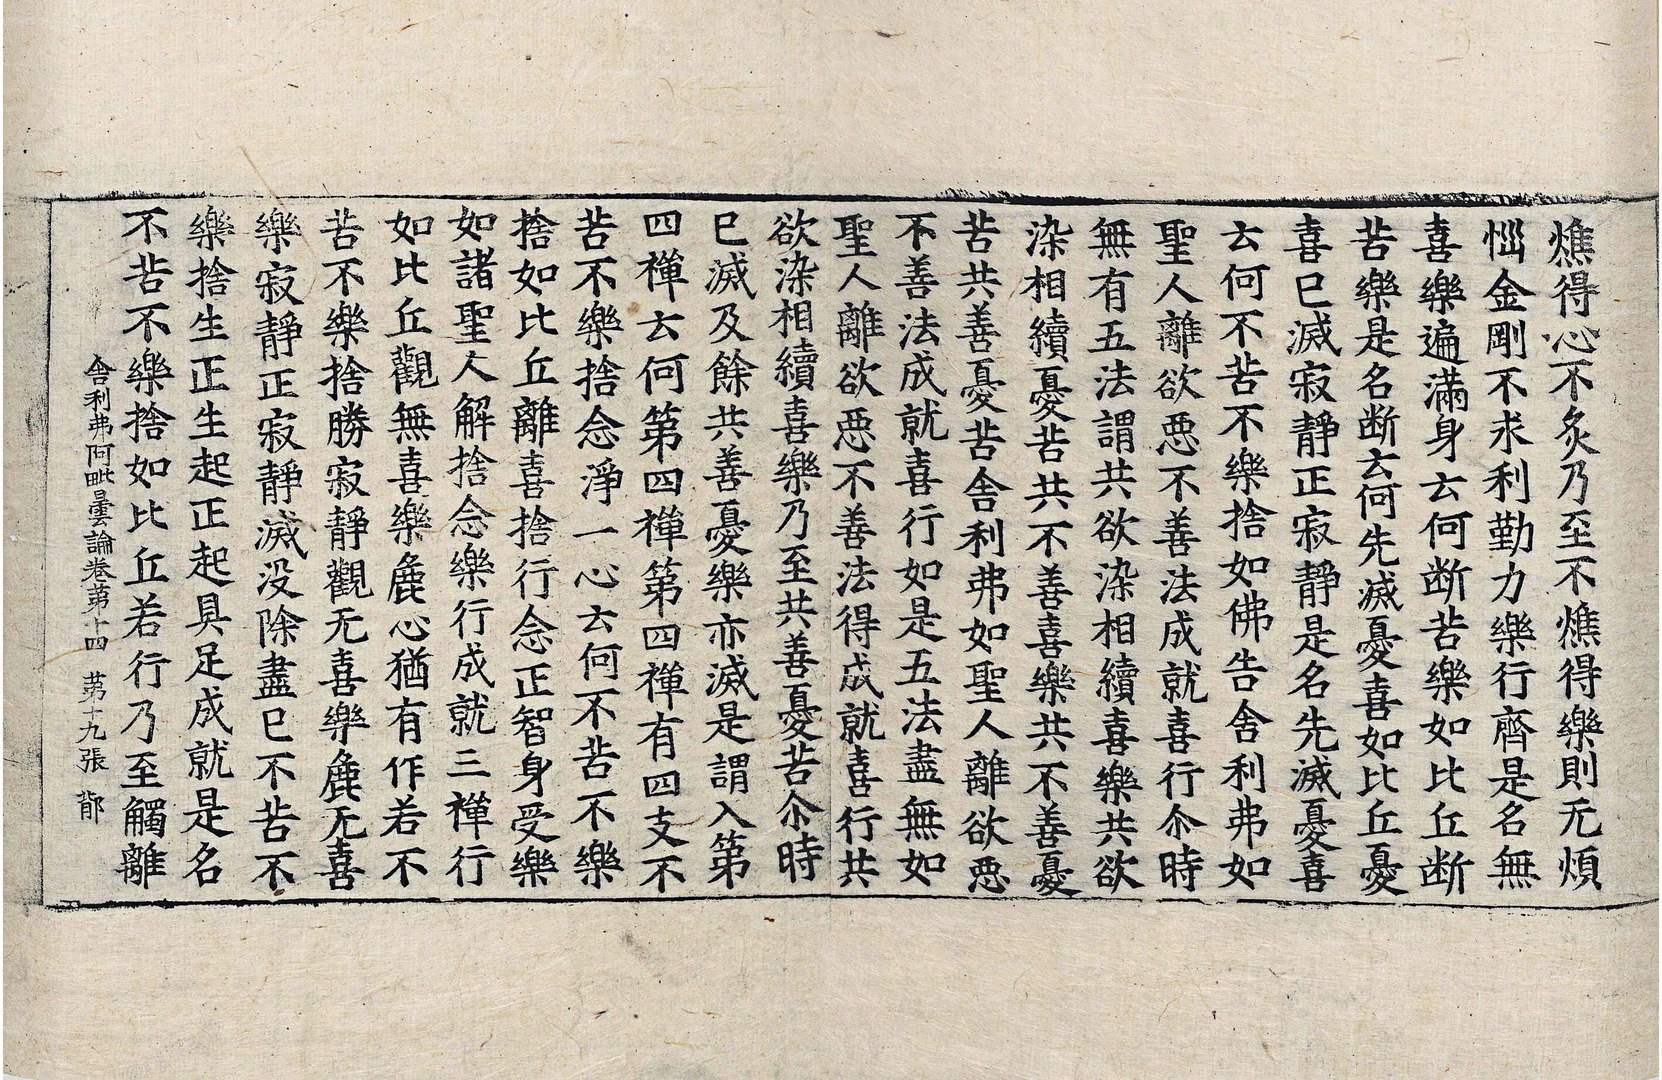 燋得心不炙乃至不燋得樂則无煩
惱金剛不求利勤力樂行齊是名無
喜樂遍滿身云何断苦樂如比丘断
苦樂是名断云何先滅憂喜如比丘憂
喜已滅寂靜正寂靜是名先滅憂喜
云何不苦不樂捨如佛告舍利弗如
聖人離欲惡不善法成就喜行尒時
無有五法謂共欲染相續喜樂共欲
染相續憂苦共不善喜樂共不善憂
苦共善憂苦舍利弗如聖人離欲惡
不善法成就喜行如是五法盡無如
聖人離欲惡不善法得成就喜行共
欲染相續喜樂乃至共善憂苦尒時
已滅及餘共善憂樂亦滅是謂入第
四禪云何第四禪第四禪有四支不
苦不樂捨念淨一心云何不苦不樂
捨如比丘離喜捨行念正智身受樂
如諸聖人解捨念樂行成就三禪行
如比丘觀無喜樂麁心猶有作若不
苦不樂捨勝寂靜觀无喜樂麁无喜
樂寂靜正寂靜滅没除盡已不苦不
樂捨生正生起正起具足成就是名
不苦不樂捨如比丘若行乃至觸離
舍利弗阿毗曇論卷第十四 第十九張 鄁